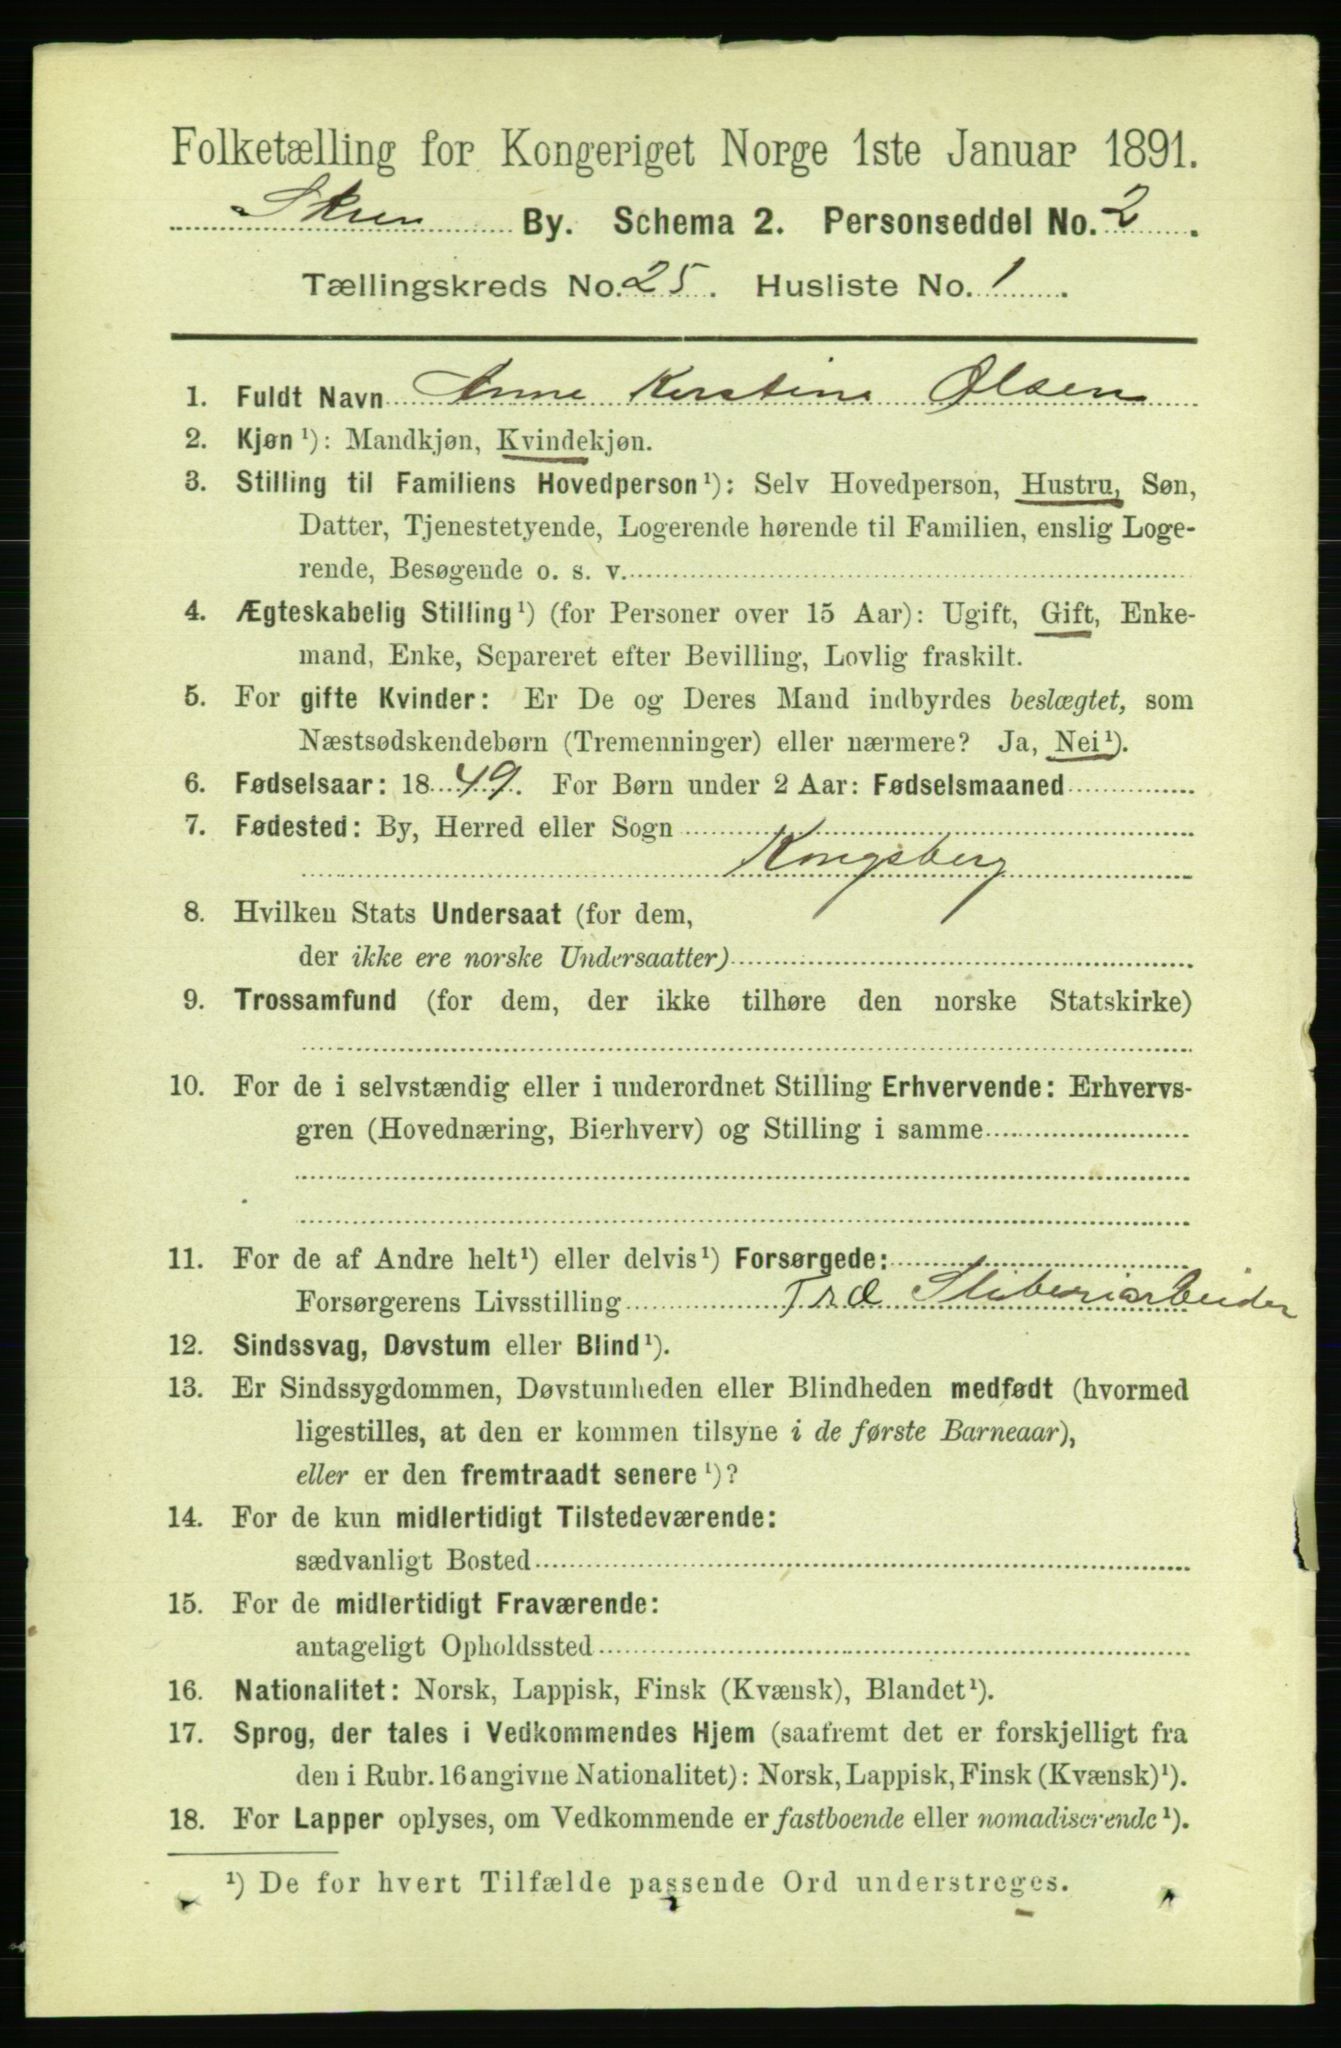 Folketælling for Kongeriget Norge 1ste Januar 1891.
Skien By. Schema 2. Personseddel No. 2.
Tællingskreds No. 25. Husliste No. 1.
1. Fuldt Navn Anne Kerstine Olsen
2. Kjøn ¹): Mandkjøn, Kvindekjøn.
3. Stilling til Familiens Hovedperson ¹): Selv Hovedperson, Hustru, Søn,
Datter, Tjenestetyende, Logerende hørende til Familien, enslig Loge-
rende, Besøgende o. s. v.
4. Ægteskabelig Stilling ¹) (for Personer over 15 Aar): Ugift, Gift, Enke-
mand, Enke, Separeret efter Bevilling, Lovlig fraskilt.
5. For gifte Kvinder: Er De og Deres Mand indbyrdes beslægtet, som
Næstsødskendebørn (Tremenninger) eller nærmere? Ja, Nei ¹).
6. Fødselsaar: 1849. For Børn under 2 Aar: Fødselsmaaned
7. Fødested: By, Herred eller Sogn
Kongsberg
8. Hvilken Stats Undersaat (for dem,
der ikke ere norske Undersaatter)
9. Trossamfund (for dem, der ikke tilhøre den norske Statskirke)
10. For de i selvstændig eller i underordnet Stilling Erhvervende: Erhvervs-
gren (Hovednæring, Bierhverv) og Stilling i samme
11. For de af Andre helt ¹) eller delvis ¹) Forsørgede:
Forsørgerens Livsstilling Træ Sliberiarbeider
12. Sindssvag, Døvstum eller Blind ¹).
13. Er Sindssygdommen, Døvstumheden eller Blindheden medfødt (hvormed
ligestilles, at den er kommen tilsyne i de første Barneaar),
eller er den fremtraadt senere ¹)?
14. For de kun midlertidigt Tilstedeværende:
sædvanligt Bosted
15. For de midlertidigt Fraværende:
antageligt Opholdssted
16. Nationalitet: Norsk, Lappisk, Finsk (Kvænsk), Blandet ¹).
17. Sprog, der tales i Vedkommendes Hjem (saafremt det er forskjelligt fra
den i Rubr. 16 angivne Nationalitet): Norsk, Lappisk, Finsk (Kvænsk) ¹).
18. For Lapper oplyses, om Vedkommende er fastboende eller nomadiserende ¹).
¹) De for hvert Tilfælde passende Ord understreges.